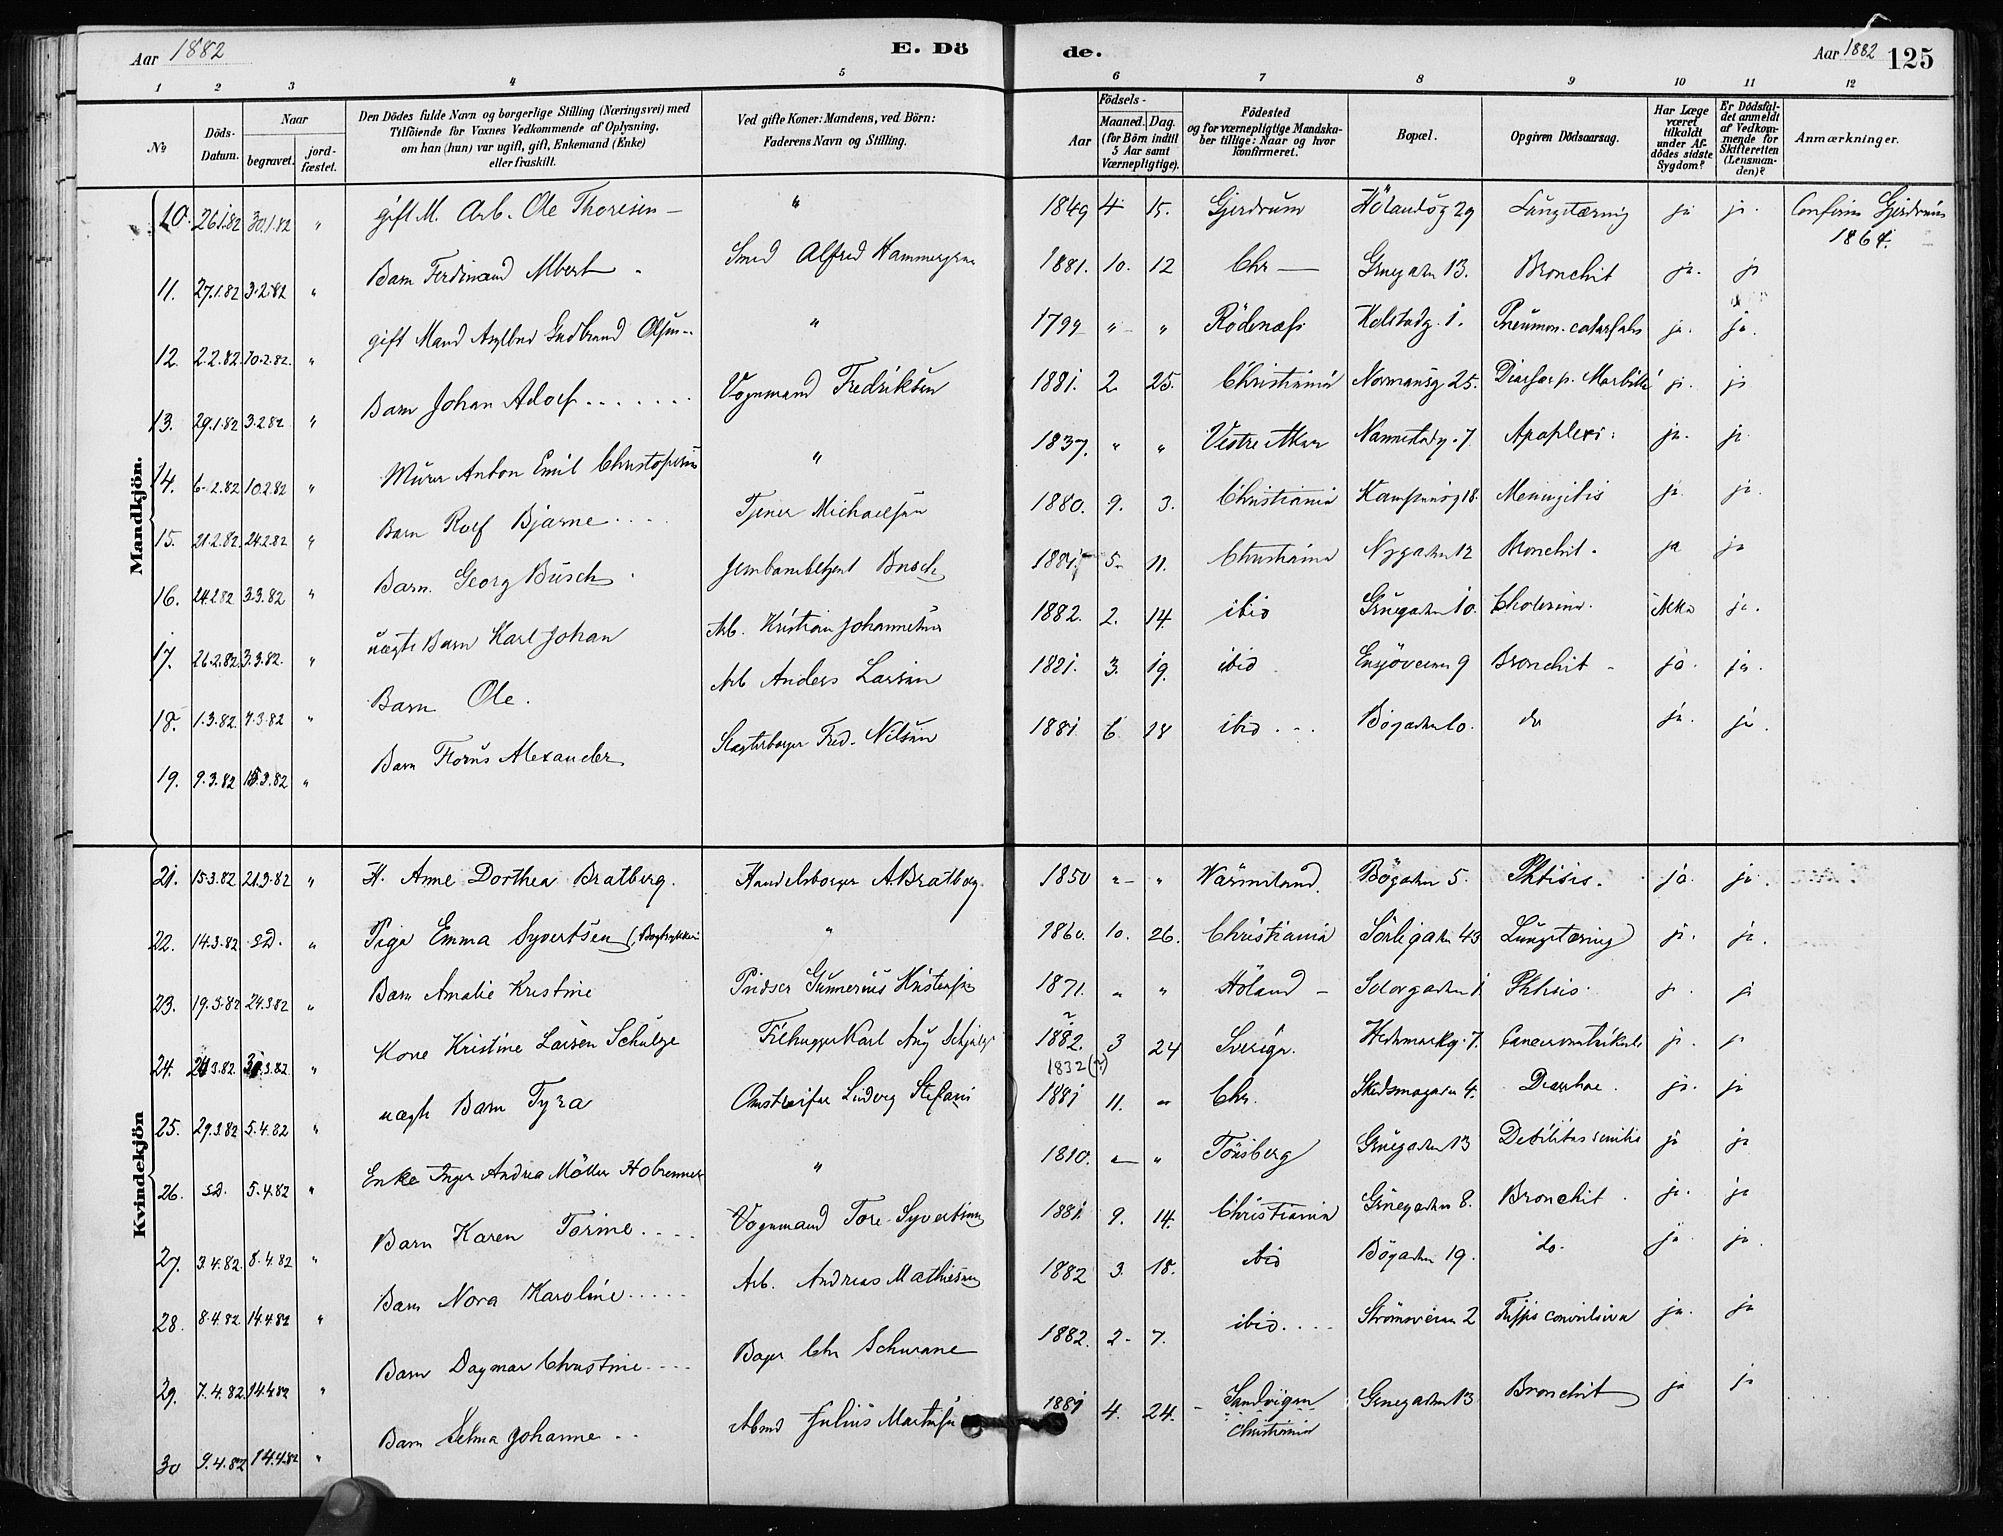 Aar 1882
E. Dö
de.
Aar 1882
125
1 2 3 4 5 6 7 8 9 10 11 12
No
Döds-
Datum.
Naar
begravet.
jord-
fæstet.
Den Dödes fulde Navn og borgerlige Stilling (Næringsvei) med
Tilföiende for Voxnes Vedkommende af Oplysning,
om han (hun) var ugift, gift, Enkemand (Enke)
eller fraskilt.
Ved gifte Koner: Mandens, ved Börn:
Faderens Navn og Stilling.
Födsels-
Aar
Maaned. Dag.
(for Börn indtil
5 Aar samt
Værnepligtige).
Födested
og for værnepligtige Mandska-
ber tillige: Naar og hvor
konfirmeret.
Bopæl.
Opgiven Dödsaarsag.
Har Læge
været
tilkaldt
under Af-
dödes sidste
Sygdom?
Er Dödsfal-
det anmeldt
af Vedkom-
mende for
Skifteretten
(Lensman-
den)?
Anmærkninger.
Mandkjön.
10. 26.1.82 30.1.82 " gift M. Arb. Ole Thoresen — " 1849 4 15. Gjerdrum 29 Lungetæring ja ja. Gjerdrum
1864.
11. 27.1.82 3.2.82 " Barn Ferdinand Albert Smed Alfred 1881. 10. 12 Chr — Gruegaden 13. Bronchit ja. ja
12. 2.2.82. 10.2.82. " gift Mand Gudbrand Olsen " 1799 " " Rödenæss 1. Pneumon. ja. ja.
13. 29.1.82 3.2.82 " Barn Johan Adolf Vognmand Fredriksen 1881. 2 25. Christiania Normansg. 25. ja. ja
14. 6.2.82 10.2.82 " Murer Anton Emil Christophersen " 1837. " " Vestre Aker Nannestadg. 7 Apoplexi. ja. ja.
15. 21.2.82. 24.2.82 " Barn Rolf Bjarne Tjener Michaelsen 1880. 9. 3. Christiania 18. Meningitis ja. ja.
16. 24.2.82 3.3.82 " Barn. Georg Busch Jernbanebetjent Busch 1881 5 11. Christiania Nygaden 12 Bronchit. ja ja
17. 26.2.82. 3.3.82. " uægte Barn Karl Johan Arb. Kristian Johannesen 1882. 2. 14. ibid Gruegaden 10. Cholerine. ikke ja.
18. 1.3.82. 7.3.82 " Barn Ole. Arb Anders Larsen 1881. 3. 19. ibid Ensjöveien 9 Bronchit ja. ja.
19. 9.3.82 15.3.82 " Barn Alexander Slagterborger Fred. Nilsen 1881 6 18 ibid Bögaden 10. do ja. ja.
Kvindekjön
21. 15.3.82 21.3.82 " H. Anne Dorthea Bratberg. Handelsborger A. Bratberg. 1850 " " Värmeland. Bögaden 5. Phtisis. ja. ja.
22. 14.3.82 s.D. " Pige Emma Syvertsen " 1860. 10. 26. Christiania Sörligaden 43 Lungetæring ja. ja.
23. 19.3.82 24.3.82 " Barn Amalie Kristine Pudser Gunnerius Kristensen 1871. " " Höland — Solorgaden 1. Phtisis. ja. ja
24. 24.3.82. 31.3.82. " Kone Kristine Larsen Schulze Filhugger Karl Aug. 1882. ? 1832(?) 3 24 Sverige. Hedemarkg. 7. ja. ja
25. 29.3.82 5.4.82 " uægte Barn Tyra Ludvig 1881 11. " Chr. Skedsmogaden 4. Diarrhoe. ja. ja
26. s.D. 5.4.82 " Enke Inger Andrea Möller " 1810. " " Tönsberg Gruegaden 13 Debilitas senilis ja ja
27. 3.4.82. 8.4.82 " Barn Karen Torine Vognmand Tore Syvertsen 1881. 9. 14. Christiania Gruegaden 8. Bronchit. ja. ja
28. 8.4.82 14.4.82 " Barn Nora Karoline Arb. Andreas Mathiesen 1882 3. 18. ibid Bögaden 19. do. ja ja.
29. 7.4.82. 14.4.82 " Barn Dagmar Christine Bager Chr Schwane 1882. 2 7. ibid. Strömsveien 2 Tussis convulsiva ja. ja
30 9.4.82 14.4.82 " Barn Selma Johanne Julius 1881 4. 24. Sandvigen
Christiania Gruegaden 13 Bronchit ja ja